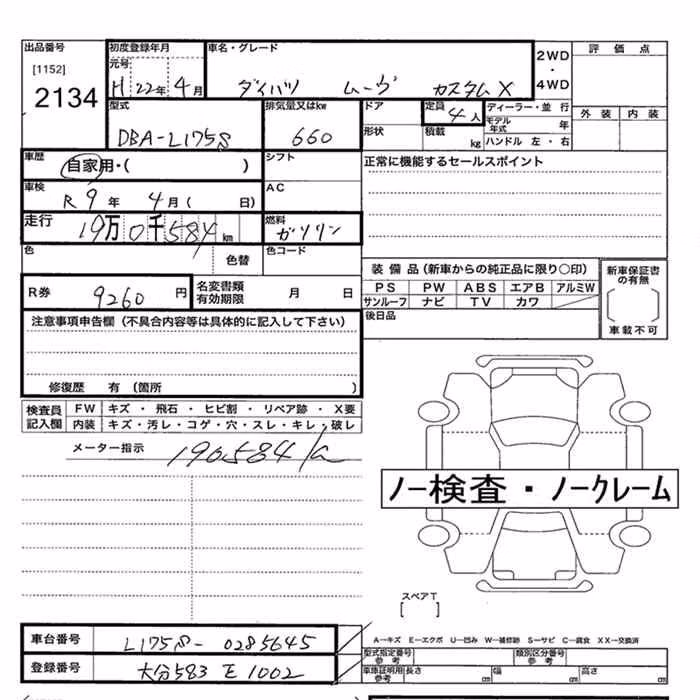 出品番号 初度登録年月 車名・グレード 2WD・4WD 評価点
[1152] 元号
2134 H 22年 4月 ダイハツ ムーヴ カスタムX
型式 排気量又はkw ドア 定員 4人 ディーラー・並行 外装 内装
DBA-L175S 660 形状 積載 kg モデル年式 年
ハンドル 左・右
車歴 自家用・( ) シフト 正常に機能するセールスポイント
車検 R9年 4月( 日) AC
走行 19万0千584km 燃料 ガソリン
色 色替 色コード
装備品(新車からの純正品に限り○印) 新車保証書の有無
PS PW ABS エアB アルミW
サンルーフ ナビ TV カワ
車載不可
R券 9260円 名変書類有効期限 月 日 後日品
注意事項申告欄(不具合内容等は具体的に記入して下さい)
修復歴 有(箇所 )
検査員記入欄 FW キズ・飛石・ヒビ割・リペア跡・X要
内装 キズ・汚レ・コゲ・穴・スレ・キレ・破レ
メーター指示 190584
ノー検査・ノークレーム
スペアT
[ ]
車台番号 L175S-0285645
A―キズ E―エクボ U―凹み W―補修跡 S―サビ C―腐食 XX―交換済
型式指定番号 参考 類別区分番号 参考
登録番号 大分583 E 1002
車庫証明用参考 長さ cm 幅 cm 高さ cm